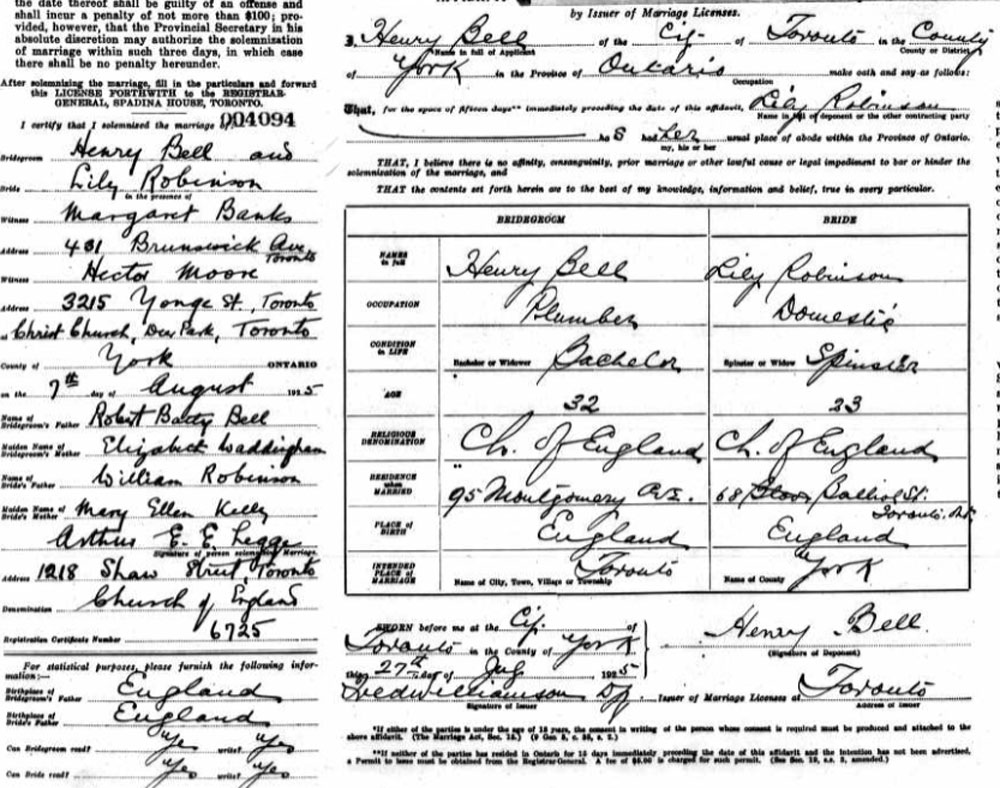 the date thereof shall be guilty of an offense and
shall incur a penalty of not more than $100; pro-
vided, however, that the Provincial Secretary in his
absolute discretion may authorize the solemnization
of marriage within such three days, in which case
there shall be no penalty hereunder.
After solemnizing the marriage, fill in the particulars and forward
this LICENSE FORTHWITH to the REGISTRAR-
GENERAL, SPADINA HOUSE, TORONTO.
I certify that I solemnized the marriage of 004094
Bridegroom Henry Bell and
Bride Lily Robinson
in the presence of
Witness Margaret Banks
Address 481 Brunswick Ave, Toronto
Witness Hector Moore
Address 3215 Yonge St, Toronto
at Christ Church, Deer Park, Toronto
County of York ONTARIO
on the 7th day of August 1925
Name of Bridegroom's Father Robert Batty Bell
Maiden Name of Bridegroom's Mother Elizabeth Waddingham
Name of Bride's Father William Robinson
Maiden Name of Bride's Mother Mary Ellen Kelly
Arthur E. E. Legge
Signature of person solemnizing Marriage.
Address 1218 Shaw Street, Toronto
Denomination Church of England
Registration Certificate Number 6725
For statistical purposes, please furnish the following infor-
mation:—
Birthplace of Bridegroom's Father England
Birthplace of Bride's Father England
Can Bridegroom read? Yes write? Yes
Can Bride read? Yes write? Yes
by Issuer of Marriage Licenses.
I, Henry Bell of the City of Toronto in the County
Name in full of Applicant County or District
of York in the Province of Ontario make oath and say as follows:
Occupation
That, for the space of fifteen days** immediately preceding the date of this affidavit, Lily Robinson
Name in full of deponent or the other contracting party
ha s had her usual place of abode within the Province of Ontario.
my, his or her
THAT, I believe there is no affinity, consanguinity, prior marriage or other lawful cause or legal impediment to bar or hinder the
solemnization of the marriage, and
THAT the contents set forth herein are to the best of my knowledge, information and belief, true in every particular.
BRIDEGROOM BRIDE
NAMES in full Henry Bell Lily Robinson
OCCUPATION Plumber Domestic
CONDITION in LIFE Bachelor or Widower Bachelor Spinster or Widow Spinster
AGE 32 23
RELIGIOUS DENOMINATION Ch. of England Ch. of England
RESIDENCE when MARRIED 95 Montgomery Ave. 68 Balliol St. Toronto. Ont.
PLACE OF BIRTH England England
INTENDED PLACE OF MARRIAGE Name of City, Town, Village or Township Toronto Name of County York
SWORN before me at the City of
Toronto in the County of York
this 27th day of July 1925
Fredwilliamson
Signature of Issuer
Henry Bell.
(Signature of Deponent)
Issuer of Marriage Licenses at Toronto
Address of Issuer
*If either of the parties is under the age of 18 years, the consent in writing of the person whose consent is required must be produced and attached to the
above affidavit. (The Marriage Act, Sec. 15.)
**If neither of the parties has resided in Ontario for 15 days immediately preceding the date of this affidavit and the intention has not been advertised,
a Permit to issue must be obtained from the Registrar-General. A fee of $5.00 is charged for such permit.